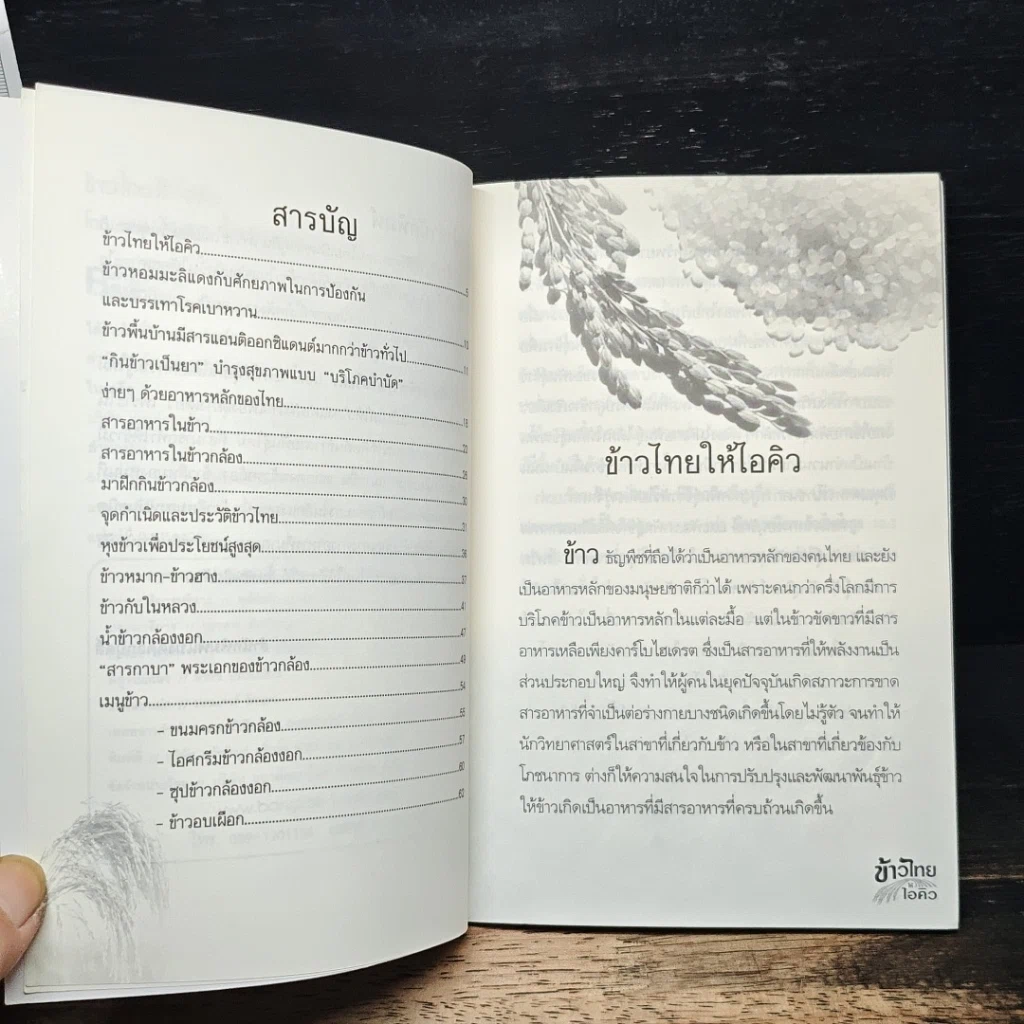 สารบัญ
ข้าวไทยให้ไอคิว
ข้าวหอมมะลิแดงกับศักยภาพในการป้องกัน
และบรรเทาโรคเบาหวาน
ข้าวพื้นบ้านมีสารแอนติออกซิแดนต์มากกว่าข้าวทั่วไป
“กินข้าวเป็นยา” บำรุงสุขภาพแบบ “บริโภคบำบัด”
ง่ายๆ ด้วยอาหารหลักของไทย
สารอาหารในข้าว
สารอาหารในข้าวกล้อง
มาฝึกกินข้าวกล้อง
จุดกำเนิดและประวัติข้าวไทย
หุงข้าวเพื่อประโยชน์สูงสุด
ข้าวหมาก-ข้าวฮาง
ข้าวกับในหลวง
น้ำข้าวกล้องงอก 47
“สารกาบา” พระเอกของข้าวกล้อง 49
เมนูข้าว 54
- ขนมครกข้าวกล้อง 55
- ไอศกรีมข้าวกล้องงอก 57
- ซุปข้าวกล้องงอก 60
- ข้าวอบเผือก
ข้าวไทยให้ไอคิว
ข้าว ธัญพืชที่ถือได้ว่าเป็นอาหารหลักของคนไทย และยัง
เป็นอาหารหลักของมนุษยชาติก็ว่าได้ เพราะคนกว่าครึ่งโลกมีการ
บริโภคข้าวเป็นอาหารหลักในแต่ละมื้อ แต่ในข้าวขัดขาวที่มีสาร
อาหารเหลือเพียงคาร์โบไฮเดรต ซึ่งเป็นสารอาหารที่ให้พลังงานเป็น
ส่วนประกอบใหญ่ จึงทำให้ผู้คนในยุคปัจจุบันเกิดสภาวะการขาด
สารอาหารที่จำเป็นต่อร่างกายบางชนิดเกิดขึ้นโดยไม่รู้ตัว จนทำให้
นักวิทยาศาสตร์ในสาขาที่เกี่ยวกับข้าว หรือในสาขาที่เกี่ยวข้องกับ
โภชนาการ ต่างก็ให้ความสนใจในการปรับปรุงและพัฒนาพันธุ์ข้าว
ให้ข้าวเกิดเป็นอาหารที่มีสารอาหารที่ครบถ้วนเกิดขึ้น
ข้าวไทย
ไอคิว